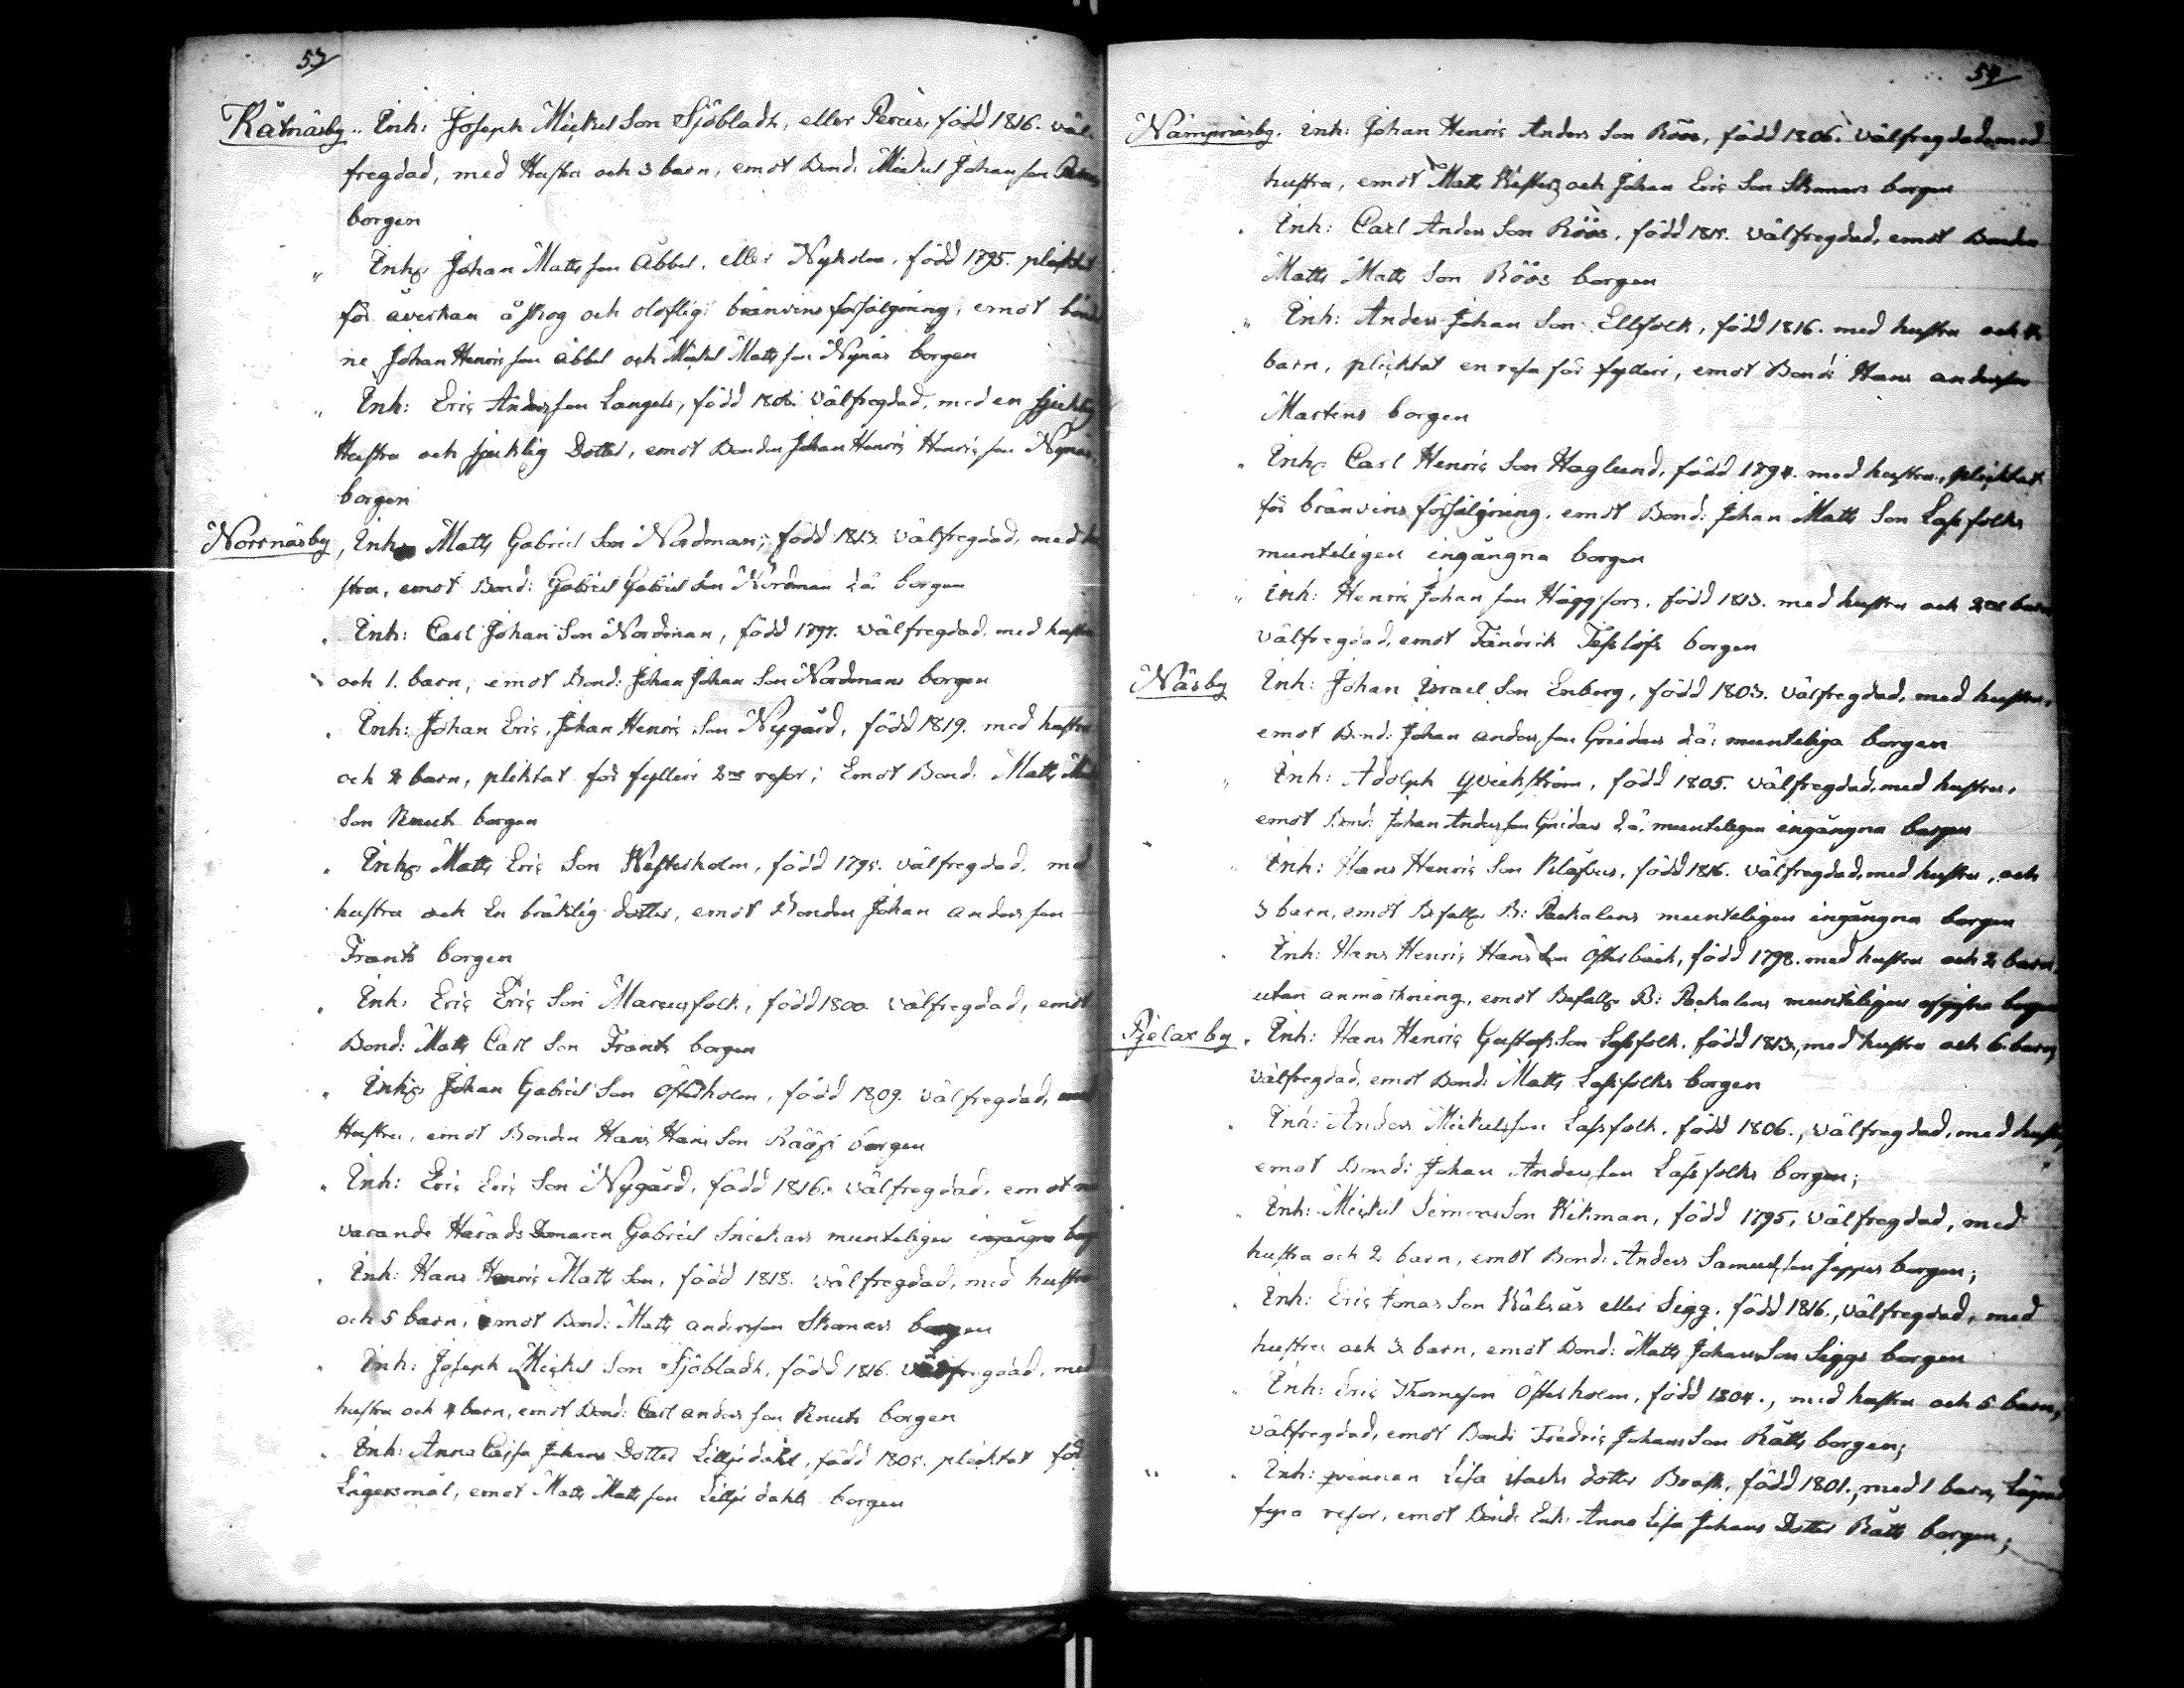 53
Rätnäsby. Inh: Joseph Mickel Son Sjöbladh, eller Percus, född 1816. väl-
fregdad, med Hustru och 3 barn, emot Bond: Mickel Johansson
borgen
" Inh: Johan Mattsson Åbbel, eller Nyholm, född 1795. pliktat
för åverkan å skog och oloflig: bränvins försäljning, emot bönder
ne Johan Henricsson Åbbel och Mickel Mattsson Nynäs borgen
" Inh: Eric Andersson Langels, född 1808. Välfregdad, med en sjuklig
Hustru och sjuklig Dotter, emot Bonden Johan Henric Henricsson Nynäs,
borgen
Norrnäsby, Inh: Matts Gabriel Son Nordman, född 1813. Välfregdad, med hu
stru, emot Bond: Gabriel Gabriel Son Nordman d.ä. borgen
" Inh: Carl Johan Son Nordman, född 1797. välfregdad, med hustru
och 1. barn, emot Bond: Johan Johan Son Nordmans borgen
" Inh: Johan Eric, Johan Henric Son Nygård, född 1819. med hustru
och 2 barn, pliktat för fylleri 2ne resor; Emot Bond: Matts
Son Knuts borgen
" Inh: Matts Eric Son Westerholm, född 1795. välfregdad, med
hustru och En bräklig dotter, emot Bonden Johan andersson
Frants borgen
" Inh: Eric Eric Son Marcusfolk, född 1800. välfregdad, emot
Bond: Matts Carl Son Frants borgen
" Inh: Johan Gabriel Son Österholm, född 1809. välfregdad, med
Hustru, emot Bonden Hans Hans Son Rååss borgen
" Inh: Eric Eric Son Nygård, född 1816. välfregdad, emot
varande Härads Domaren Gabriel Snickars munteligen ingångna borg
" Inh: Hans Henric Matts Son, född 1818. välfregdad, med hustru
och 5 barn, emot Bond: Matts andersson Skomars borgen
" Inh: Joseph Mickel Son Sjöbladh, född 1816. Välfregdad, med
hustru och 4 barn, emot Bond: Carl andersson Knuts borgen
" Inh: Anna Caisa Johans Dotter Lilljedahl, född 1805. pliktat för
Lägersmål, emot Matts Mattsson Lilljedahls borgen
54
Nämpnäsby. Inh: Johan Henric Anders Son Röös, född 1806. välfregdad, med
hustru, emot Matts Westers och Johan Eric Son Skomars borgen
" Inh: Carl Anders Son Röös, född välfregdad, emot Bonden
Matts Matts Son Röös borgen
" Inh: Anders Johan Son Ellfolk, född 1816. med hustru och 4
barn, plicktat en resa för fylleri, emot Bond: Hans andersson
Martens borgen
" Inh: Carl Henric Son Haglund, född 1794. med hustru, plicktat
för bränvins försäljning, emot Bond: Johan Matts Son Lassfolks
munteligen ingångna borgen
" Inh: Henric Johansson Häggfors, född 1813. med hustru och 2ne barn
välfregdad, emot Fändrik Tesslöfs borgen
Näsby Inh: Johan Israel Son Enberg, född 1803. välfregdad, med hustru,
emot Bond: Johan andersson Gridars d.ä: munteliga borgen
" Inh: Adolph Qveckström, född 1805. välfregdad, med hustru,
emot Bond: Johan Andersson Gridars d.ä. munteligen ingångna borgen
" Inh: Hans Henric Son Klåfvus, född 1816. välfregdad, med hustru, och
3 barn, emot Befallgs B: Packalens munteligen ingångna borgen
" Inh: Hans Henric Hansson Österback, född 1798. med hustru och 2 barn,
utan anmärkning, emot Befallgs B: Packalens munteligen afgifna borgen
Pjelax by " Inh: Hans Henric Gustafs Son Lassfolk, född 1813, med hustru och 6. barn,
välfregdad, emot Bond: Matts Lassfolks borgen
" Inh: Anders Mickelsson Lassfolk, född 1806., välfregdad, med hustru
emot Bond: Johan Andersson Lassfolks borgen;
" Inh: Mickel Simons Son Wikman, född 1795, välfregdad, med
hustru och 2 barn, emot Bond: Anders Samuelsson Jeppes borgen;
" Inh: Eric Jonas Son Wäläs eller Sigg, född 1816., välfregdad, med
hustru och 3 barn, emot Bond: Matts Johans Son Siggs borgen
" Inh: Eric Thomasson Österholm, född 1804., med hustru och 5 barn,
välfregdad, emot Bond: Fredric Johans Son Rätts borgen;
" Inh: qvinnan Lisa Isacks dotter Brask, född 1801., med 1 barn, Lägrad
fyra resor, emot Bond: Enk: Anna Lisa Johans Dotter Rätts borgen;